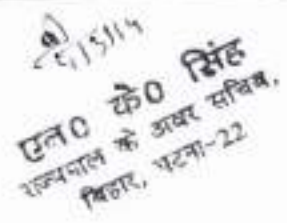 5/5/14
एल० के० सिंह
राज्यपाल के अवर सचिव,
बिहार, पटना-22